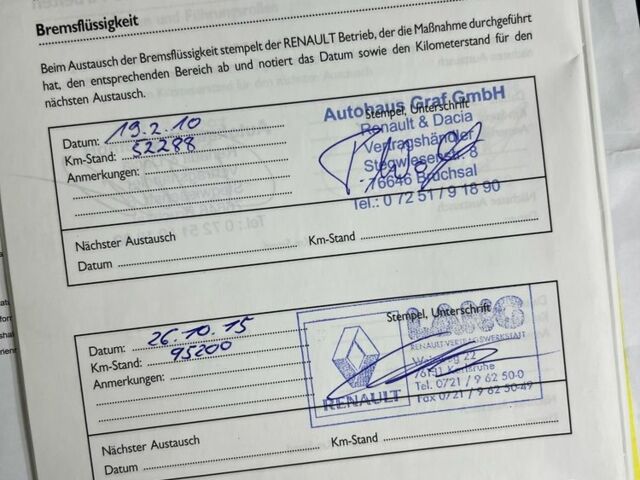 Bremsflüssigkeit
Beim Austausch der Bremsflüssigkeit stempelt der RENAULT Betrieb, der die Maßnahme durchgeführt
hat, den entsprechenden Bereich ab und notiert das Datum sowie den Kilometerstand für den
nächsten Austausch.
Datum: 19.2.10
Km-Stand: 52288
Anmerkungen:
Stempel, Unterschrift
Autohaus Graf GmbH
Renault & Dacia
Vertragshändler
Stegwiesenstr. 8
76646 Bruchsal
Tel.: 0 72 51 / 9 18 90
Nächster Austausch
Datum Km-Stand
Datum: 26.10.15
Km-Stand: 95200
Anmerkungen:
Stempel, Unterschrift
RENAULT
RENAULT-VERTRAGSWERKSTATT
22
Karlsruhe
Tel. 0721 / 9 62 50-0
Fax 0721 / 9 62 50-49
Nächster Austausch
Datum Km-Stand